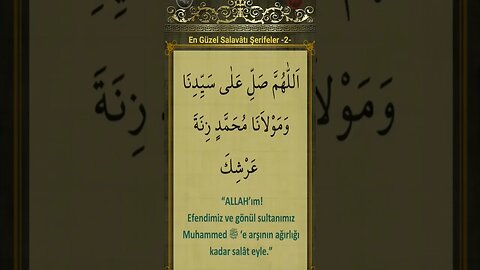 En Güzel Salavâtı Şerifeler -2-
اَللّٰهُمَّ صَلِّ عَلٰى سَيِّدِنَا
وَمَوْلاَنَا مُحَمَّدٍ زِنَةَ
عَرْشِكَ
“ALLAH’ım!
Efendimiz ve gönül sultanımız
Muhammed ﷺ ‘e arşının ağırlığı
kadar salât eyle.”